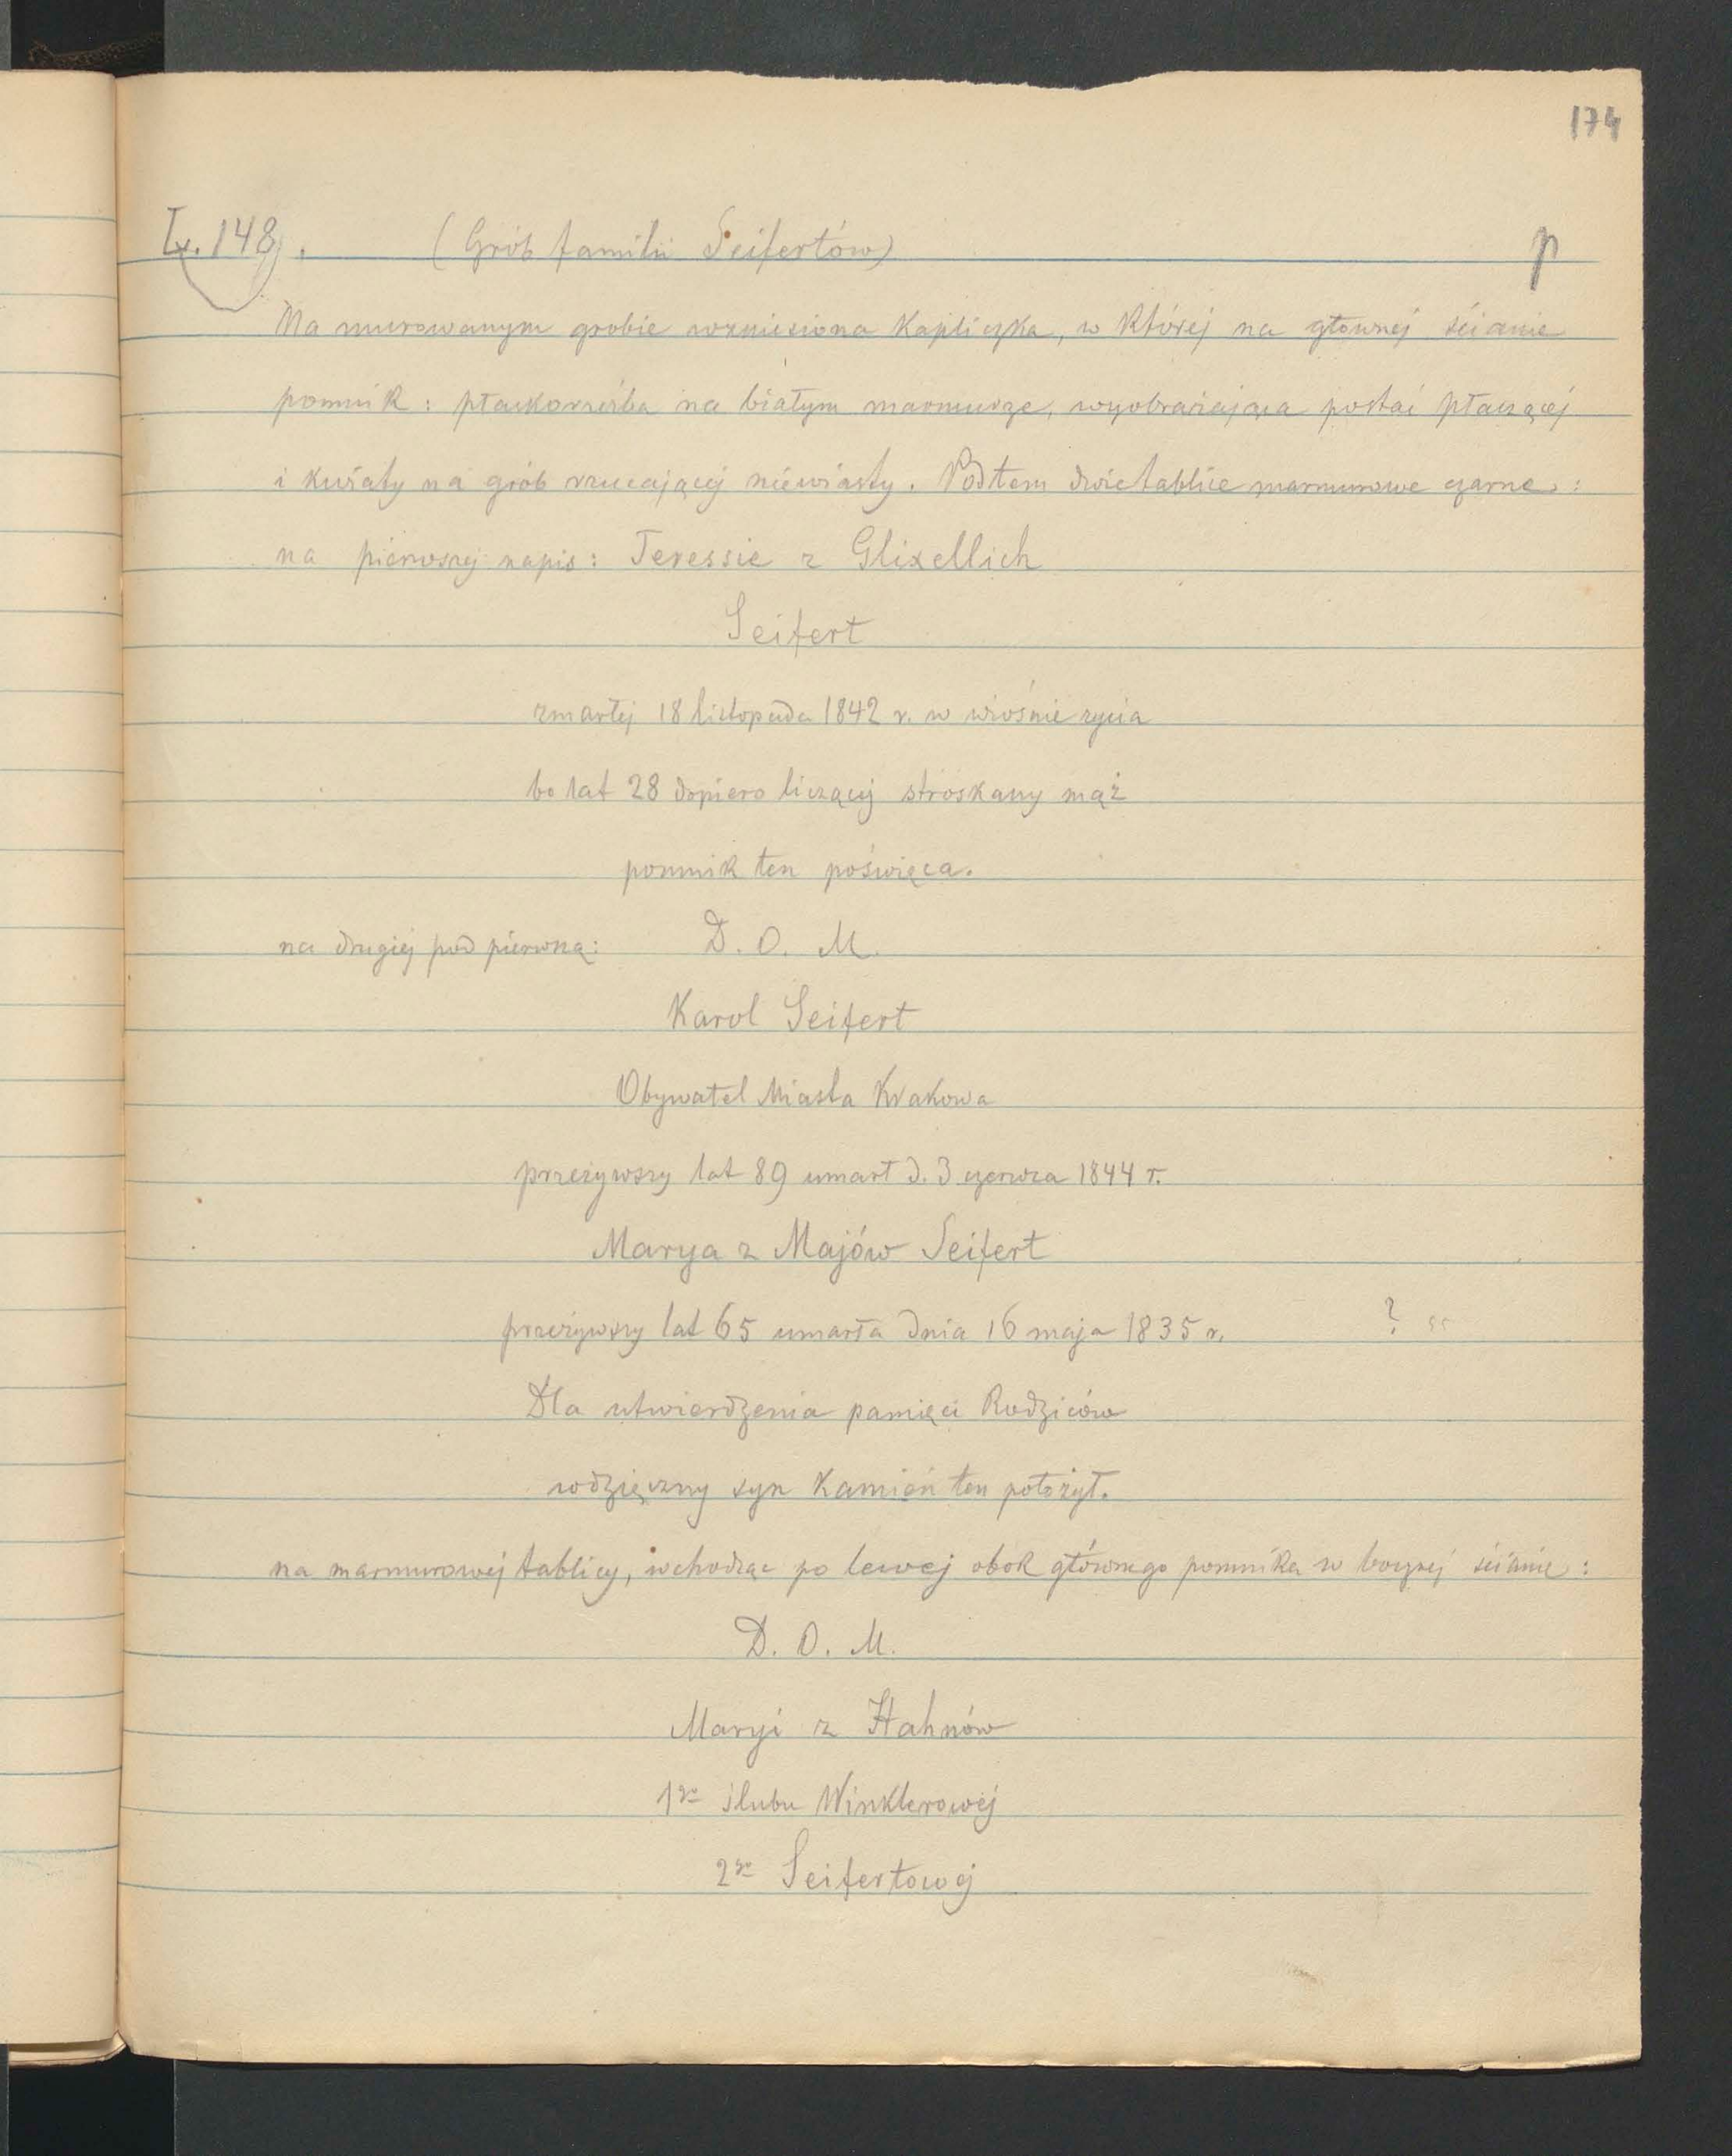 174
Lx. 148). (Grób familii Seifertów) p
Na murowanym grobie wzniesiona Kapliczka, w Której na głownej ścianie
pomnik: płaskorzeźba na białym marmurze, wyobrażająca postać płaczącej
i kwiaty na grób rzucającej niewiasty. Pod tem dwie tablice marmurowe czarne:
na pierwszej napis: Teressie z Glixellich
Seifert
zmarłej 18 listopada 1842 r. w wiośnie życia
bo lat 28 dopiero liczącej stroskany mąż
pomnik ten poświęca.
na drugiej pod pierwszą: D. O. M.
Karol Seifert
Obywatel Miasta Krakowa
przeżywszy lat 89 umarł d. 3 czerwca 1844 r.
Marya z Majów Seifert
przeżywszy lat 65 umarła dnia 16 maja 1835 r. ?
Dla utwierdzenia pamięci Rodziców
wdzięczny syn Kamień ten położył.
na marmurowej tablicy, wchodząc po lewej obok głównego pomnika w bocznej ścianie:
D. O. M.
Maryi z Hahnów
1go ślubu Winklerowej
2go Seifertowej